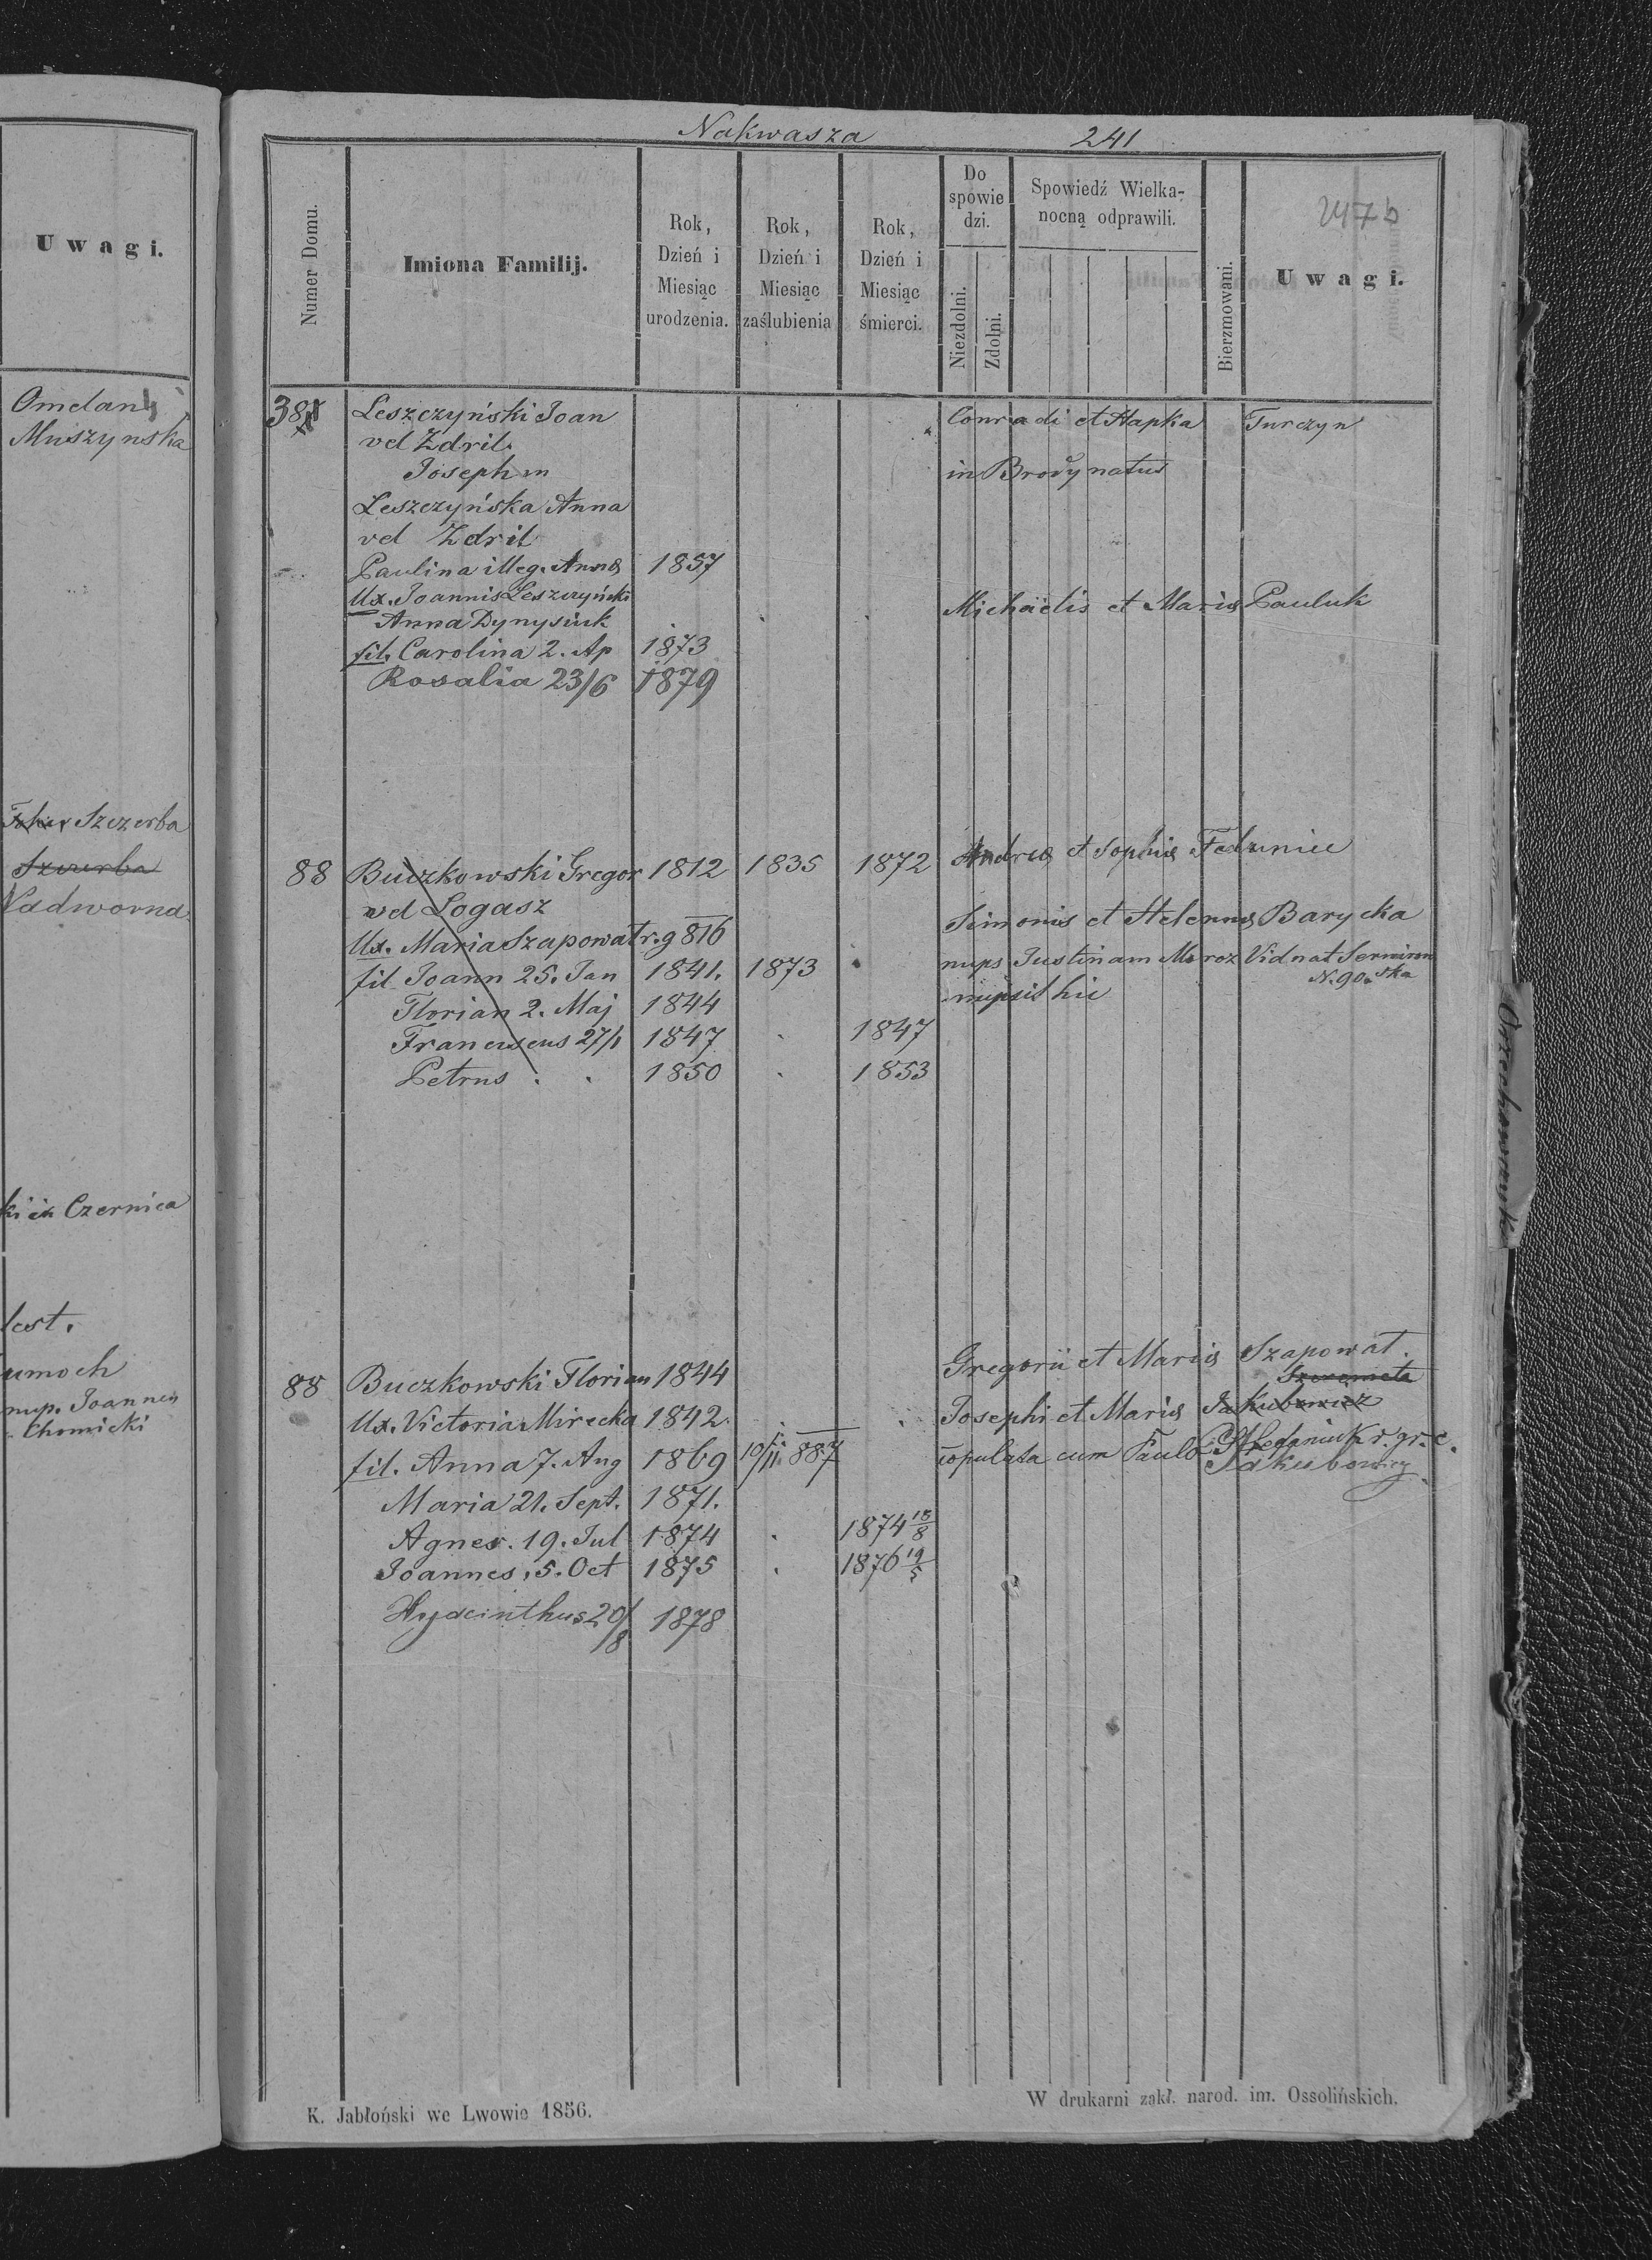 Uwagi.
Omelan
Muszynska
Szczerba
Szczerba
Nadworna
ki in Czernica
lest.
umoch
nup. Joannes
Chomicki
Nakwasza 241
Numer Domu.
Imiona Familij.
Rok,
Dzień i
Miesiąc
urodzenia.
Rok,
Dzień i
Miesiąc
zaślubienia
Rok,
Dzień i
Miesiąc
śmierci.
Do
spowie
dzi.
Niezdolni.
Zdolni.
Spowiedź Wielka-
nocną odprawili.
Bierzmowani.
247b
Uwagi.
38 Leszczyński Joan Conradi et Hapka Turczyn
vel Zdril.
Joseph m in Brody natus
Leszczyńska Anna
vel Zdril
Paulina illeg. Annæ 1857
Ux. Joannis Leszczyński Michaëlis et Mariæ Pauluk
Anna Dynysiuk
fil. Carolina 2. Ap 1873
Rosalia 23/6 1879
88 Buczkowski Gregor 1812 1835 1872 Andreæ et Sophiæ
vel Logasz Simonis et Helennæ Barycka
Ux. Maria Szapowat r.g 816
fil Joann 25. Jan 1841. 1873 nups Justinam Moroz Vid nat
N. 90.
Florian 2. Maj 1844 nupsit hic
Franciscus 27/1 1847 1847
Petrus 1850 1853
88 Buczkowski Florian 1844 Gregorii et Mariæ Szapowat.
Szeremeta
Ux. Victoria Mirecka 1842 Josephi et Mariæ Jakubowicz
fil. Anna 7. Aug 1869 10/11 887 copulata cum Paulo Stefaniuk r. gr. c.
Jakubowicz
Maria 21. Sept. 1871.
Agnes. 19. Jul 1874 1874 18/8
Joannes, 5. Oct 1875 1876 19/5
Hyacinthus 20/8 1878
Orzechowczyk
K. Jabłoński we Lwowie 1856.
W drukarni zakł. narod. im. Ossolińskich.